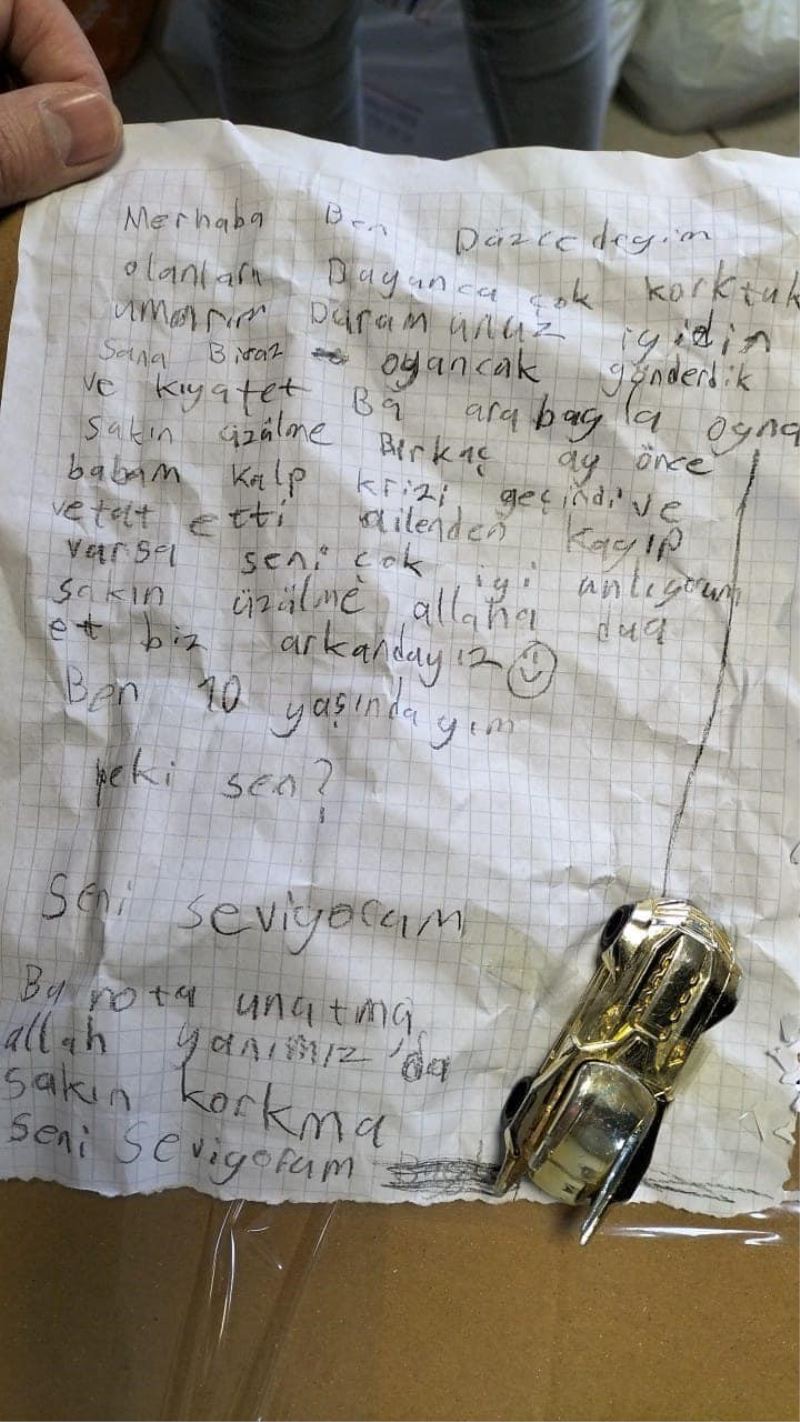 Merhaba Ben Düzcedeyim
olanları Duyunca çok korktuk
umarım Durumunuz iyidir
Sana Biraz oyuncak gönderdik
ve kıyafet Bu arabayla oyna
sakın üzülme Birkaç ay önce
babam kalp krizi geçirdi ve
vefat etti ailenden kayıp
varsa seni çok iyi anlıyorum
sakın üzülme allaha dua
et biz arkandayız
Ben 10 yaşındayım
peki sen?
Seni seviyorum
Bu notu unutma
allah yanımız'da
sakın korkma
seni seviyorum